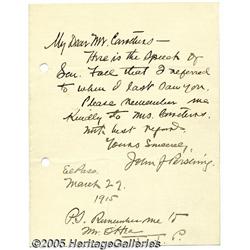 My Dear Mr. Carothers –
Here is the Speech of
Sen. Fall that I referred
to when I last saw you.
Please remember me
kindly to Mrs. Carothers.
With best regards
Yours Sincerely,
John J Pershing
El Paso
March 27,
1915
P.S. Remember me to
Mr.
P.
©2005 HeritageGalleries